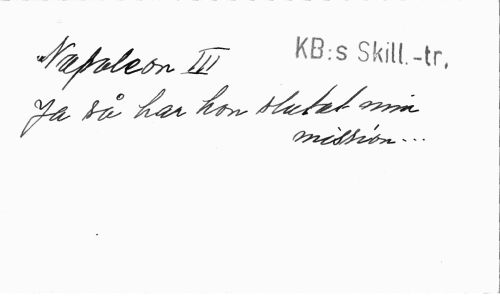 Napoleon III
KB:s Skill.-tr.
Ja så har hon slutat min
mission...